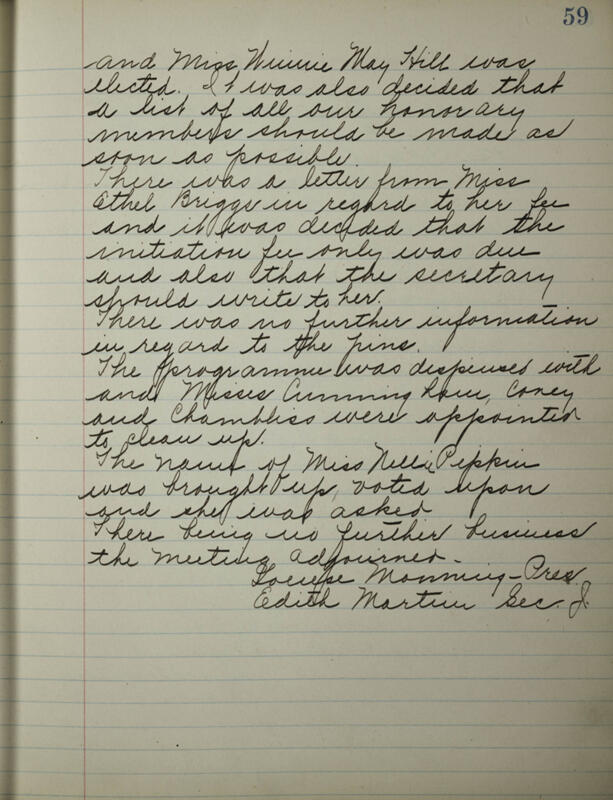 59
and Miss Winnie May Hill was
elected. It was also decided that
a list of all our honorary
members should be made as
soon as possible.
There was a letter from Miss
Ethel Briggs in regard to her fee
and it was decided that the
initiation fee only was due
and also that the secretary
should write to her.
There was no further information
in regard to the pins.
The programme was dispensed with
and Misses Cunningham, Coney
and Chambliss were appointed
to clean up.
The name of Miss Nellie Pipkin
was brought up, voted upon
and she was asked
There being no further business
the meeting adjourned.
Louise Manning - Pres.
Edith Martin Sec. J.